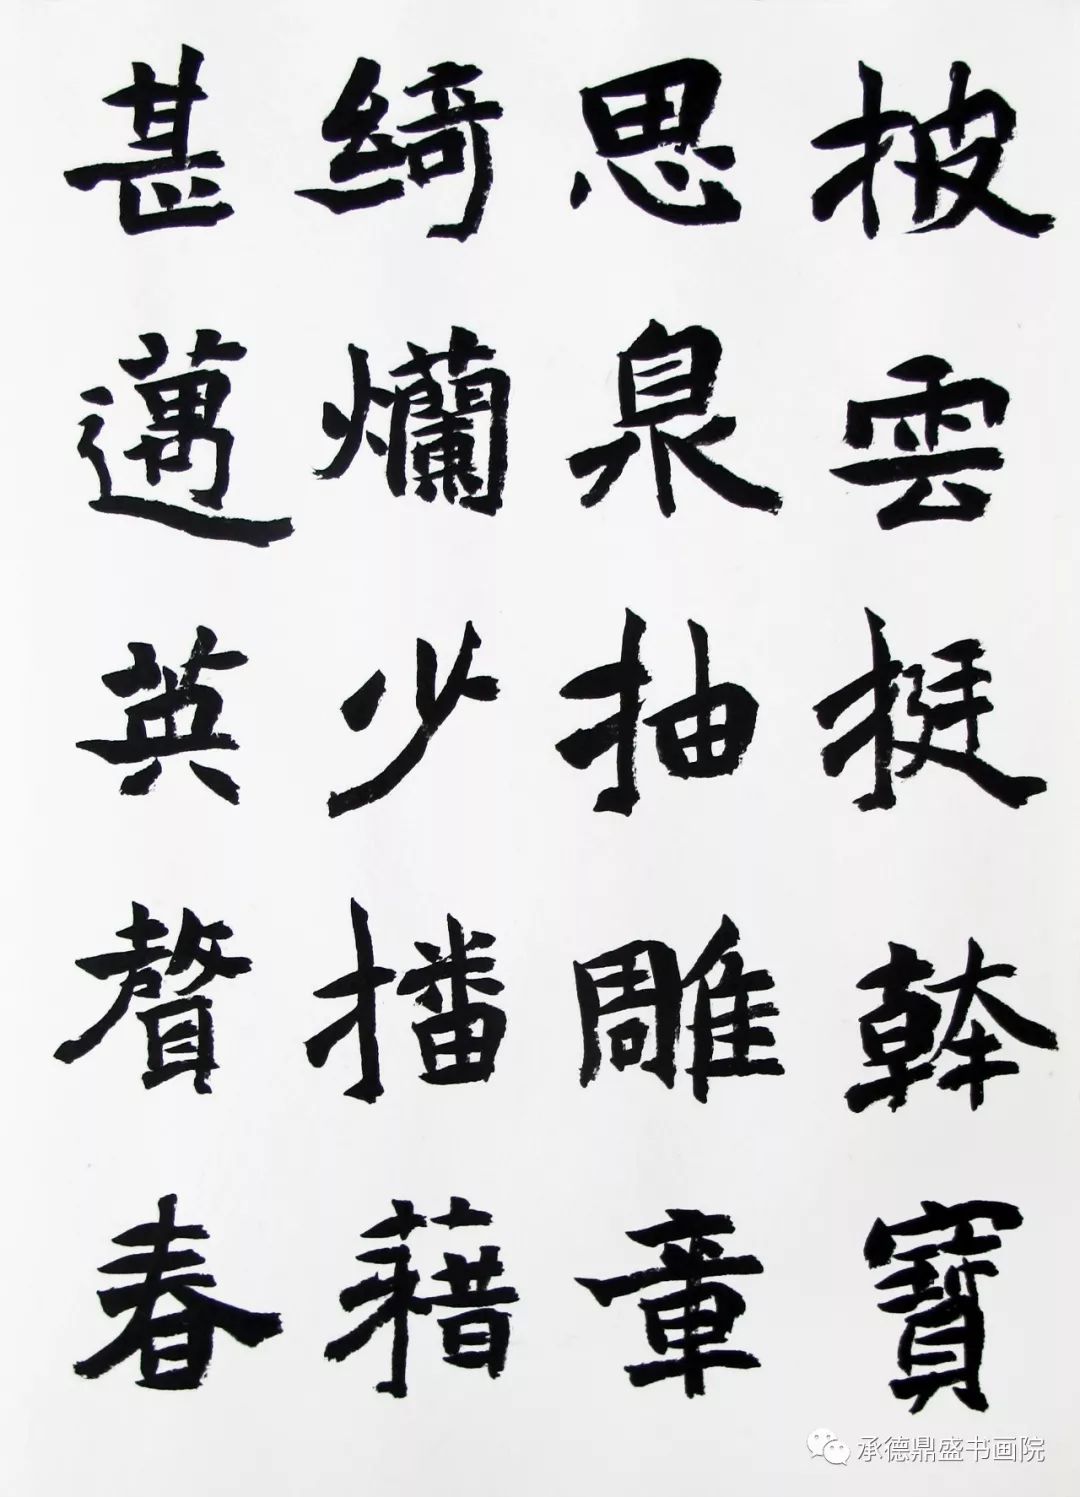 披雲挺幹寶
思泉抽雕章
綺爛少播藉
甚邁英聲春
承德鼎盛书画院